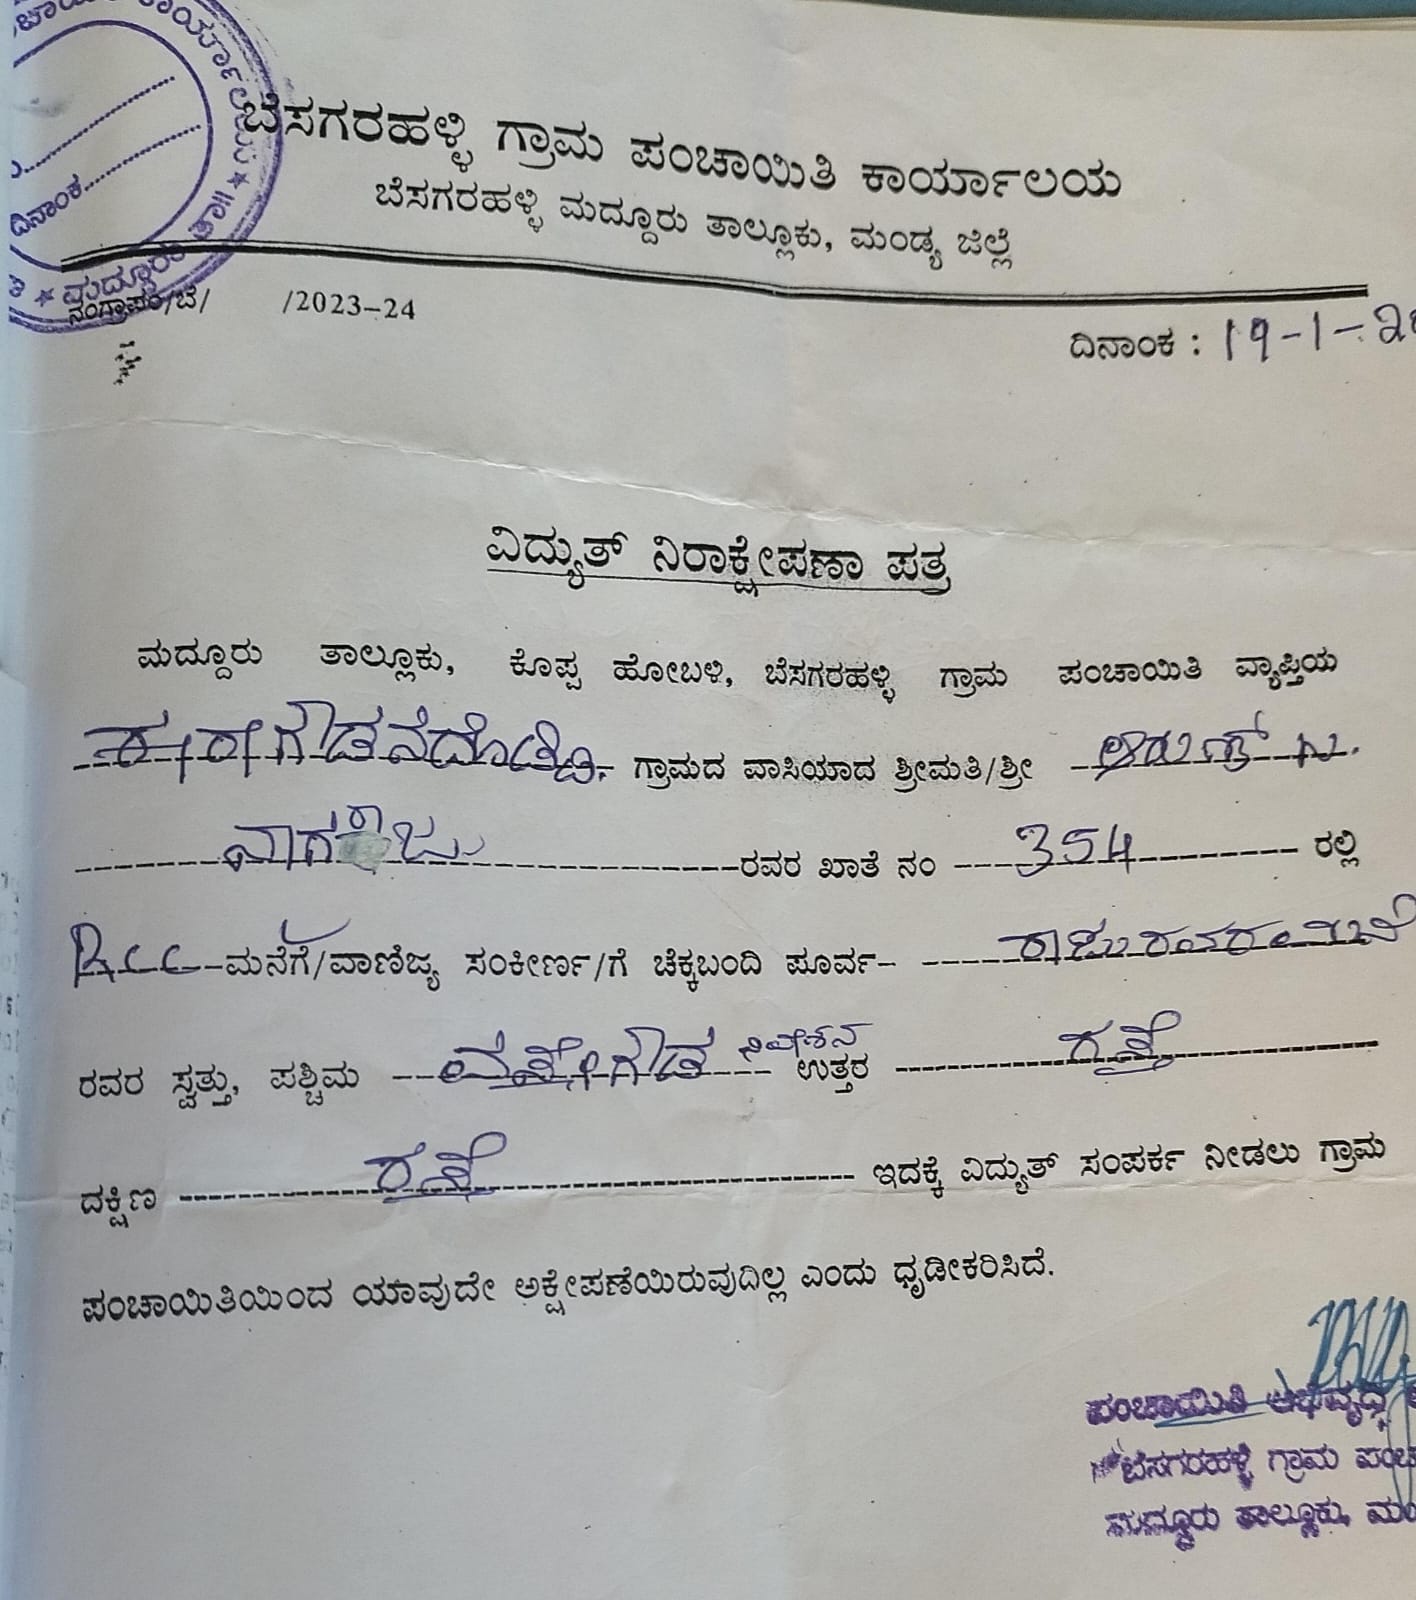 ದಿನಾಂಕ
ಬೆಸಗರಹಳ್ಳಿ ಗ್ರಾಮ ಪಂಚಾಯಿತಿ ಕಾರ್ಯಾಲಯ
ಬೆಸಗರಹಳ್ಳಿ ಮದ್ದೂರು ತಾಲ್ಲೂಕು, ಮಂಡ್ಯ ಜಿಲ್ಲೆ
ನಂಗ್ರಾಪಂ/ಬೆ/ /2023-24
ದಿನಾಂಕ : 19-1-2
ವಿದ್ಯುತ್ ನಿರಾಕ್ಷೇಪಣಾ ಪತ್ರ
ಮದ್ದೂರು ತಾಲ್ಲೂಕು, ಕೊಪ್ಪ ಹೋಬಳಿ, ಬೆಸಗರಹಳ್ಳಿ ಗ್ರಾಮ ಪಂಚಾಯಿತಿ ವ್ಯಾಪ್ತಿಯ
ಗ್ರಾಮದ ವಾಸಿಯಾದ ಶ್ರೀಮತಿ/ಶ್ರೀ
ನಾಗರಾಜು ರವರ ಖಾತೆ ನಂ 354 ರಲ್ಲಿ
RCC ಮನೆಗೆ/ವಾಣಿಜ್ಯ ಸಂಕೀರ್ಣ/ಗೆ ಚೆಕ್ಕಬಂದಿ ಪೂರ್ವ-
ರವರ ಸ್ವತ್ತು, ಪಶ್ಚಿಮ ನಿವೇಶನ ಉತ್ತರ ರಸ್ತೆ
ದಕ್ಷಿಣ ರಸ್ತೆ ಇದಕ್ಕೆ ವಿದ್ಯುತ್ ಸಂಪರ್ಕ ನೀಡಲು ಗ್ರಾಮ
ಪಂಚಾಯಿತಿಯಿಂದ ಯಾವುದೇ ಅಕ್ಷೇಪಣೆಯಿರುವುದಿಲ್ಲ ಎಂದು ಧೃಡೀಕರಿಸಿದೆ.
ಪಂಚಾಯಿತಿ ಅಭಿವೃದ್ಧಿ
ಬೆಸಗರಹಳ್ಳಿ ಗ್ರಾಮ ಪಂಚಾ
ಮದ್ದೂರು ತಾಲ್ಲೂಕು, ಮಂ